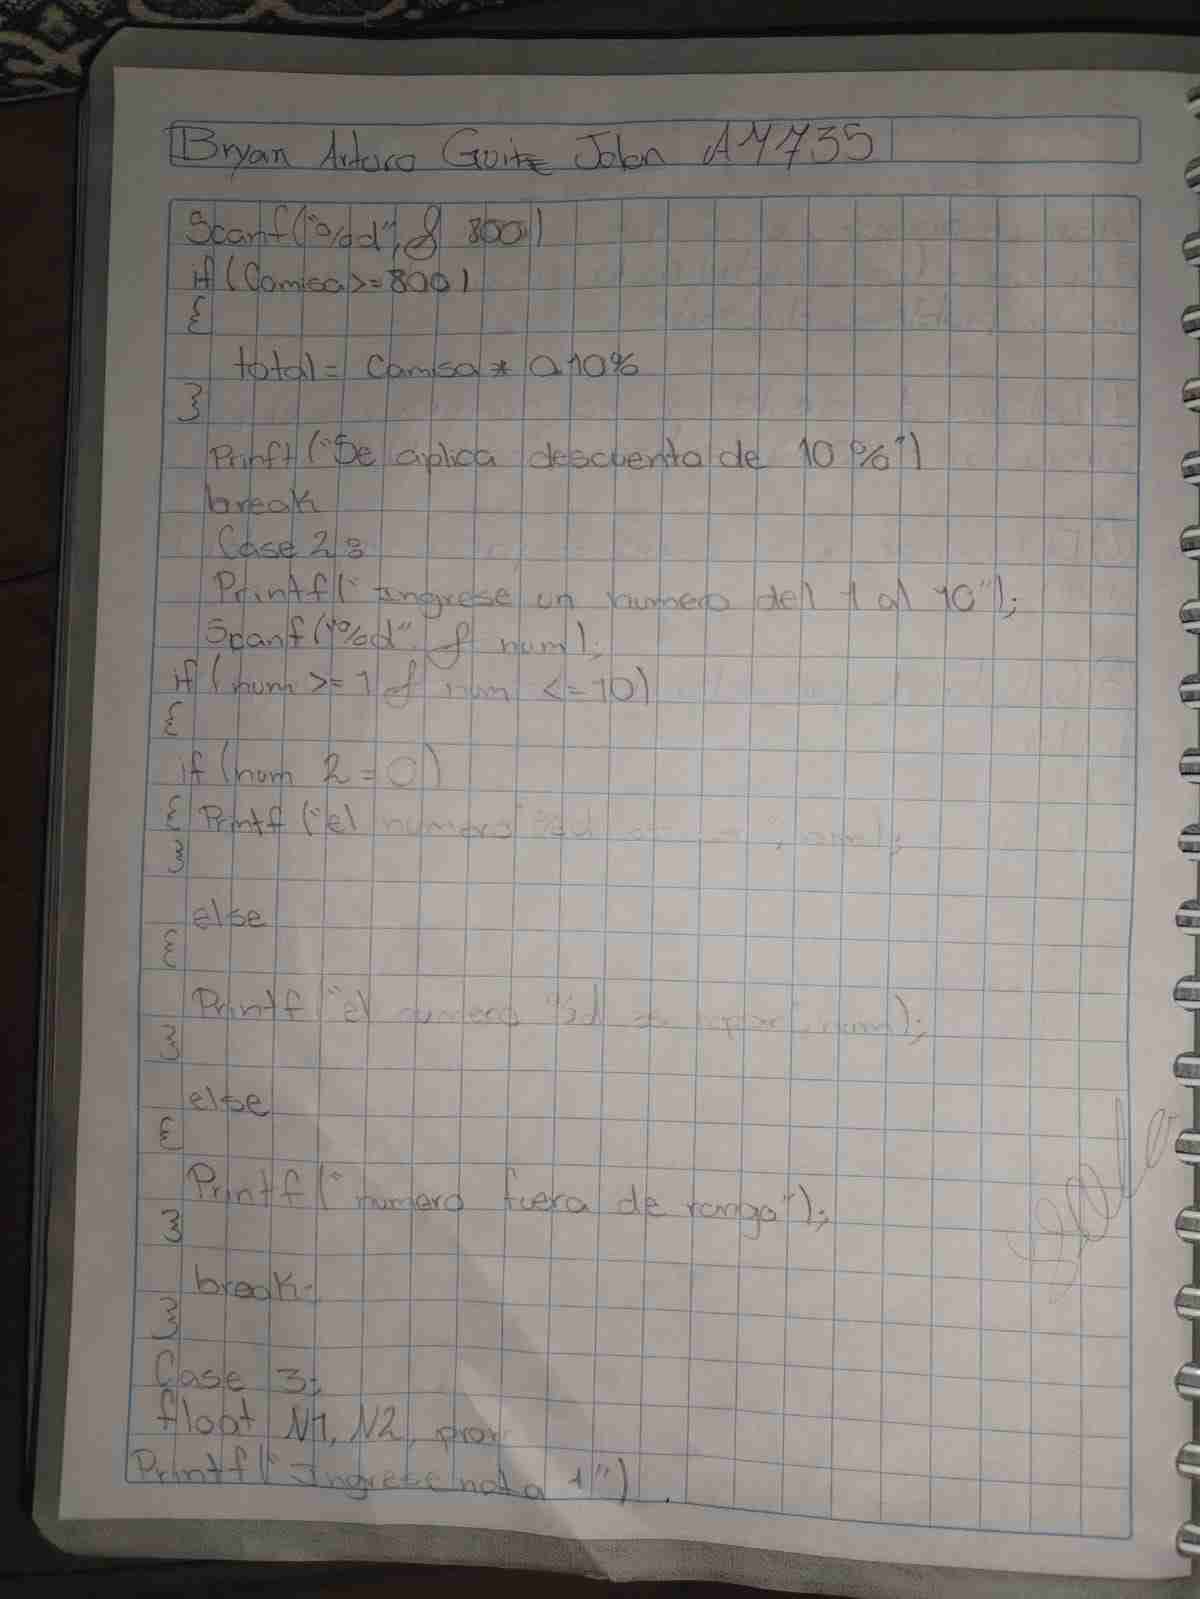 Bryan Arturo Guitz Jolon A77735
Scanf("%d", & 800)
if (Camisa >= 800)
{
total = Camisa * 0.10%
}
Prinft ("Se aplica descuento de 10 %")
break
Case 2:
Printf(" Ingrese un numero del 1 al 10");
Scanf("%d", & num);
if (num >= 1 & num <= 10)
{
if (num 2 = 0)
{ Printf ("el numero %d
}
else
{
Printf ("el numero %d es impar", num);
}
else
{
Printf (" numero fuera de rango");
}
break;
}
Case 3:
float N1, N2, prom
Printf(" Ingrese nota 1")